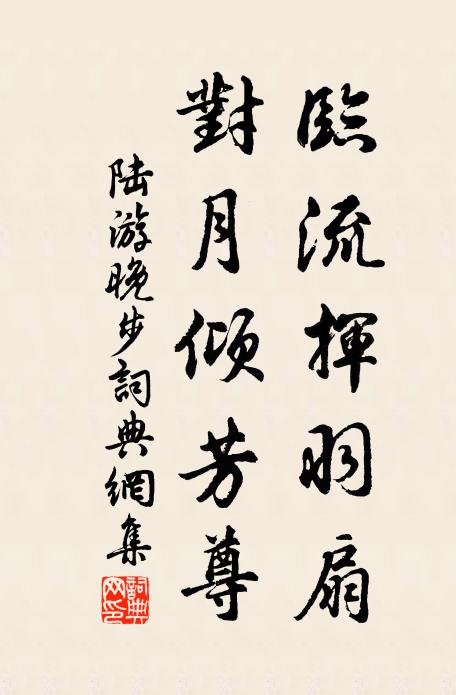 臨流揮羽扇
對月傾芳尊
陸游晚步詞典網集
詞典
網印